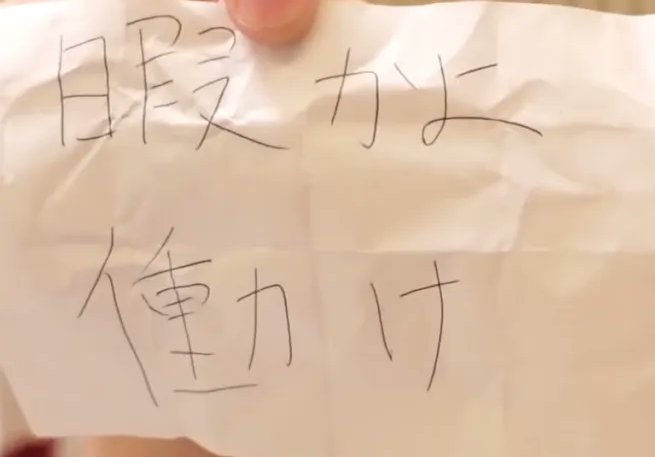 暇かよ
働け